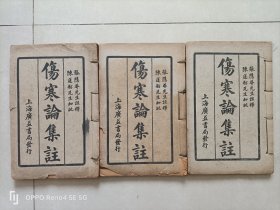 張隱菴先生註釋
陳蓮舫先生加批
傷寒論集註
上海廣益書局發行
張隱菴先生註釋
陳蓮舫先生加批
傷寒論集註
上海廣益書局發行
張隱菴先生註釋
陳蓮舫先生加批
傷寒論集註
上海廣益書局發行
OPPO Reno4 SE 5G